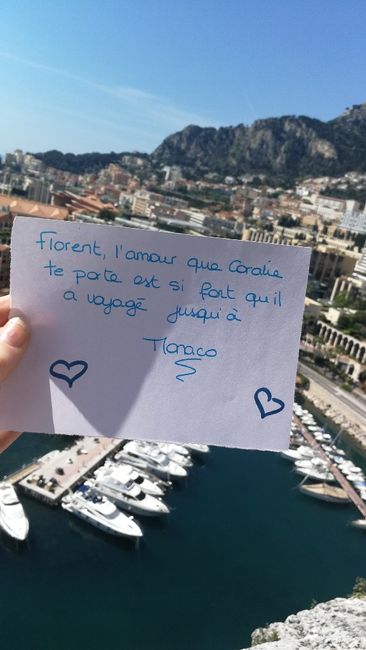 Florent, l'amour que Coralie
te porte est si fort qu'il
a voyagé jusqu'à
Monaco